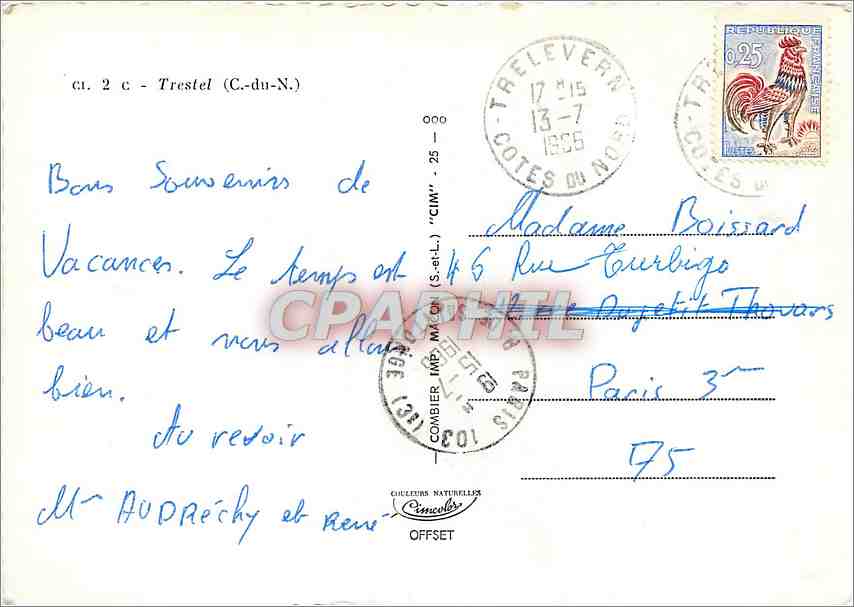 CI. 2 C - Trestel (C.-du-N.)
Bons Souvenirs de
Vacances. Le temps est
beau et nous allons
bien.
Au revoir
Mme AUDRéchy et René
COMBIER IMP. MACON (S.-et-L.) "CIM" - 25 - 000
COULEURS NATURELLES
Cimcolor
OFFSET
TRELEVERN
17 H 15
13-7
1966
COTES DU NORD
REPUBLIQUE FRANÇAISE
0,25
POSTES
Madame Boissard
45 Rue Turbigo
Dupetit Thouars
Paris 3me
75
PARIS 103
CPAPHIL